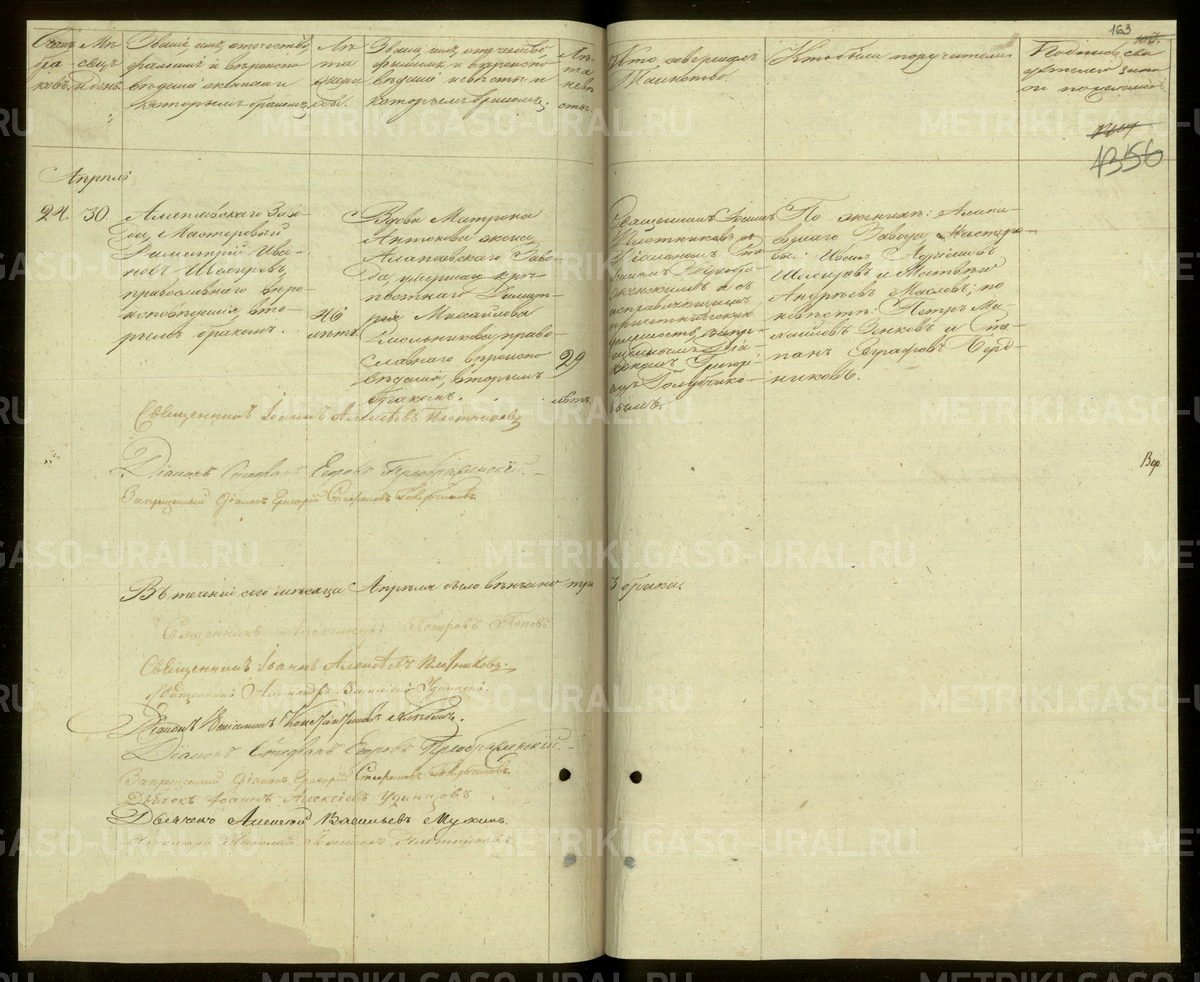 163
Счетъ браковъ.
Мѣсяцъ и день.
Званіе, имя, отчество,
фамилія и вѣроиспо-
вѣданіе жениха и
которымъ бракомъ.
Лѣ-
та
жени-
ха.
Званіе, имя, отечество,
фамилія и вѣроиспо-
вѣданіе невѣсты и
которымъ бракомъ.
Лѣ-
та
невѣ-
сты.
Кто совершалъ
Таинство.
Кто были поручители.
Подпись сви-
дѣтелей запи-
си по желанію.
1356
Апрѣль
24. 30.
Алапаевскаго Заво-
да, Мастеровый
Димитрій Ива-
новъ Шемировъ,
православнаго вѣро-
исповѣданія, вто-
рымъ бракомъ.
46
лѣтъ.
Вдова Матрона
Антонова жена
Алапаевскаго Заво-
да, умершаго крѣ-
постнаго Димит-
рія Михайлова
Смольникова, право-
славнаго вѣроиспо-
вѣданія, вторымъ
бракомъ.
29
лѣтъ.
Священникъ Іоаннъ
Плотниковъ съ
Діакономъ Сте-
фаномъ Преобра-
женскимъ и съ
исправляющимъ
причетническую
должность, запре-
щеннымъ Діа-
кономъ Григорі-
емъ Голубчико-
вымъ.
По женихѣ: Алапа-
евскаго Завода, Мастеро-
вые: Иванъ
и Матвѣй
Андреевъ Масловъ; по
невѣстѣ: Петръ Ми-
хайловъ и Сте-
панъ Евграфовъ Берд-
никовъ.
Священникъ Іоаннъ Алексѣевъ Плотниковъ
Діаконъ Стефанъ Егоровъ Преображенскій
Запрещенный Діаконъ Григорій Стефановъ Голубчиковъ.
Вер
Въ теченіи сего мѣсяца Апрѣля было вѣнчано три 3 брака.
Священникъ Александръ Петровъ Поповъ
Священникъ Іоаннъ Алексѣевъ Плотниковъ.
Священникъ Александръ Удинцовъ.
Діаконъ Веніаминъ Константиновъ
Діаконъ Стефанъ Егоровъ Преображенскій
Запрещенный Діаконъ Григорій Стефановъ Голубчиковъ.
Дьячекъ Іоаннъ Алексѣевъ Удинцовъ
Дьячекъ Алексѣй Васильевъ Мухинъ.
Пономарь Николай Плотниковъ
METRIKI.GASO-URAL.RU